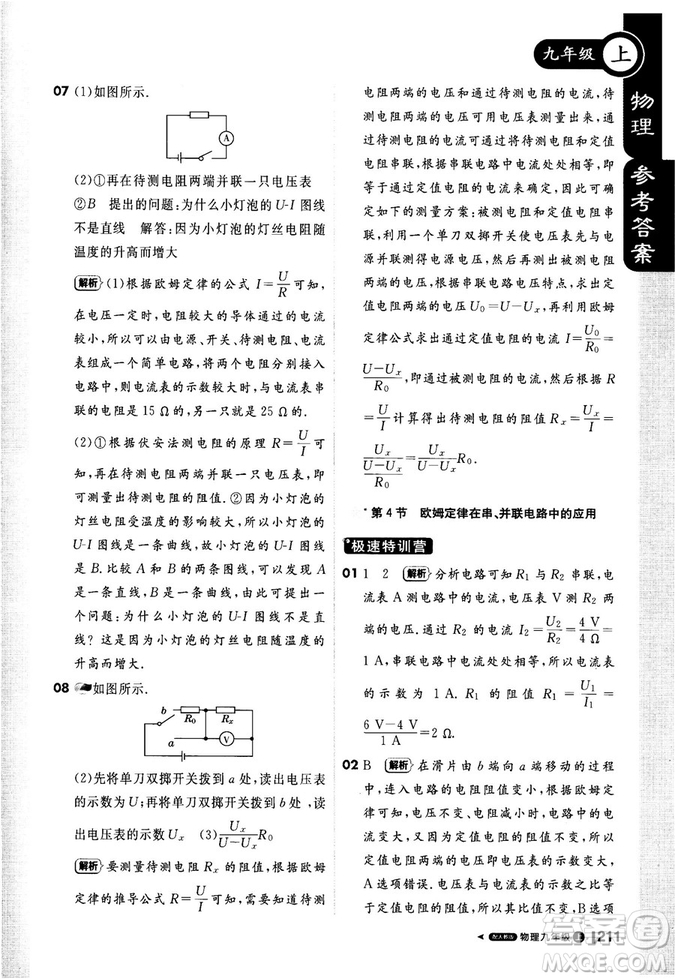 九年级 上
物理 参考答案
07 (1)如图所示.
A
(2)①再在待测电阻两端并联一只电压表
②B 提出的问题:为什么小灯泡的U-I图线
不是直线 解答:因为小灯泡的灯丝电阻随
温度的升高而增大
解析 (1)根据欧姆定律的公式 I=U/R 可知,
在电压一定时,电阻较大的导体通过的电流
较小,所以由电源、开关、待测电阻和电流表
组成一个简单电路,将两个电阻分别接入
电路中,则电流表的示数较大时与电流表串
联的电阻是 15 Ω 的,较小的就是 25 Ω 的.
(2)①根据伏安法测电阻的原理 R=U/I 可
知,再在待测电阻两端并联一只电压表,即
可测量待测电阻的阻值.②因为小灯泡的
灯丝电阻受温度的影响较大,故小灯泡的
U-I图线是一条曲线,故丁小组的图线应
是B.比较A和B两条图线可知,A图线是
一条直线,B图线是一条曲线,故可提出一
个问题:为什么小灯泡的U-I图线不是直
线?这是因为小灯泡的灯丝电阻随温度的
升高而增大.
08 如图所示.
R0 Rx
b
a
V
(2)先将单刀双掷开关拨到a处,读出电压表
的示数为U;再将单刀双掷开关拨到b处,读
出电压表的示数Ux (3)Ux/(U-Ux)R0
解析 要测量待测电阻 Rx 的阻值,根据欧姆
定律的推导公式 R=U/I 可知,需知道待测
电阻两端的电压和通过待测电阻的电流,待
测电阻两端的电压可用电压表测量出来,
通过待测电阻的电流可利用待测电阻和定值
电阻串联,根据串联电路中电流处处相等,即
等于通过定值电阻的电流来确定.故待测电
阻的测量方案:被测电阻和定值电阻串联,
利用一个单刀双掷开关和电压表,先测电
源电压,然后测出被测电阻两端的电压
Ux,根据串联电路的电压特点,求出定
值电阻两端的电压U0=U-Ux,再利用欧姆
定律公式求出通过定值电阻的电流 I=U0/R0
=(U-Ux)/R0,即通过被测电阻的电流,再根据 R
=U/I 计算得出待测电阻的阻值 Rx=Ux/I
=Ux/((U-Ux)/R0)=Ux/(U-Ux)R0.
第4节 欧姆定律在串、并联电路中的应用
极速特训营
01 1 2 解析 分析电路可知 R1 与 R2 串联,电
流表A测电路中的电流,电压表V测 R2 两
端的电压.通过 R2 的电流 I2=U2/R2=4 V/4 Ω=
1 A,串联电路中电流处处相等,所以电流表
的示数为 1 A. R1 的阻值 R1=U1/I1=
(6 V-4 V)/1 A=2 Ω.
02 B 解析 在滑片由b端向a端移动的过程
中,连入电路的电阻变小,由欧姆定
律可知,电压不变、电阻变小时,电路中电流
变大,又由定值电阻的阻值不变、电流变大
可知,定值电阻两端的电压即电压表示数变大,
A选项错误.因电源电压不变,故B选项
配人教版 物理九年级 上 211